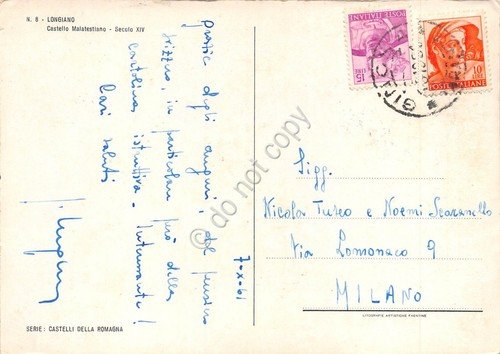 N. 8 - LONGIANO
Castello Malatestiano - Secolo XIV
POSTE ITALIANE
LIRE 15
10
POSTE ITALIANE
7-X-61
grazie degli auguri, del pensiero
in particolare però della
cartolina istruttiva - interessante!
Cari saluti
Sigg.
Nicola Tureo e Noemi
Via Lomonaco 9
MILANO
do not copy
SERIE: CASTELLI DELLA ROMAGNA
LITOGRAFIE ARTISTICHE FAENTINE